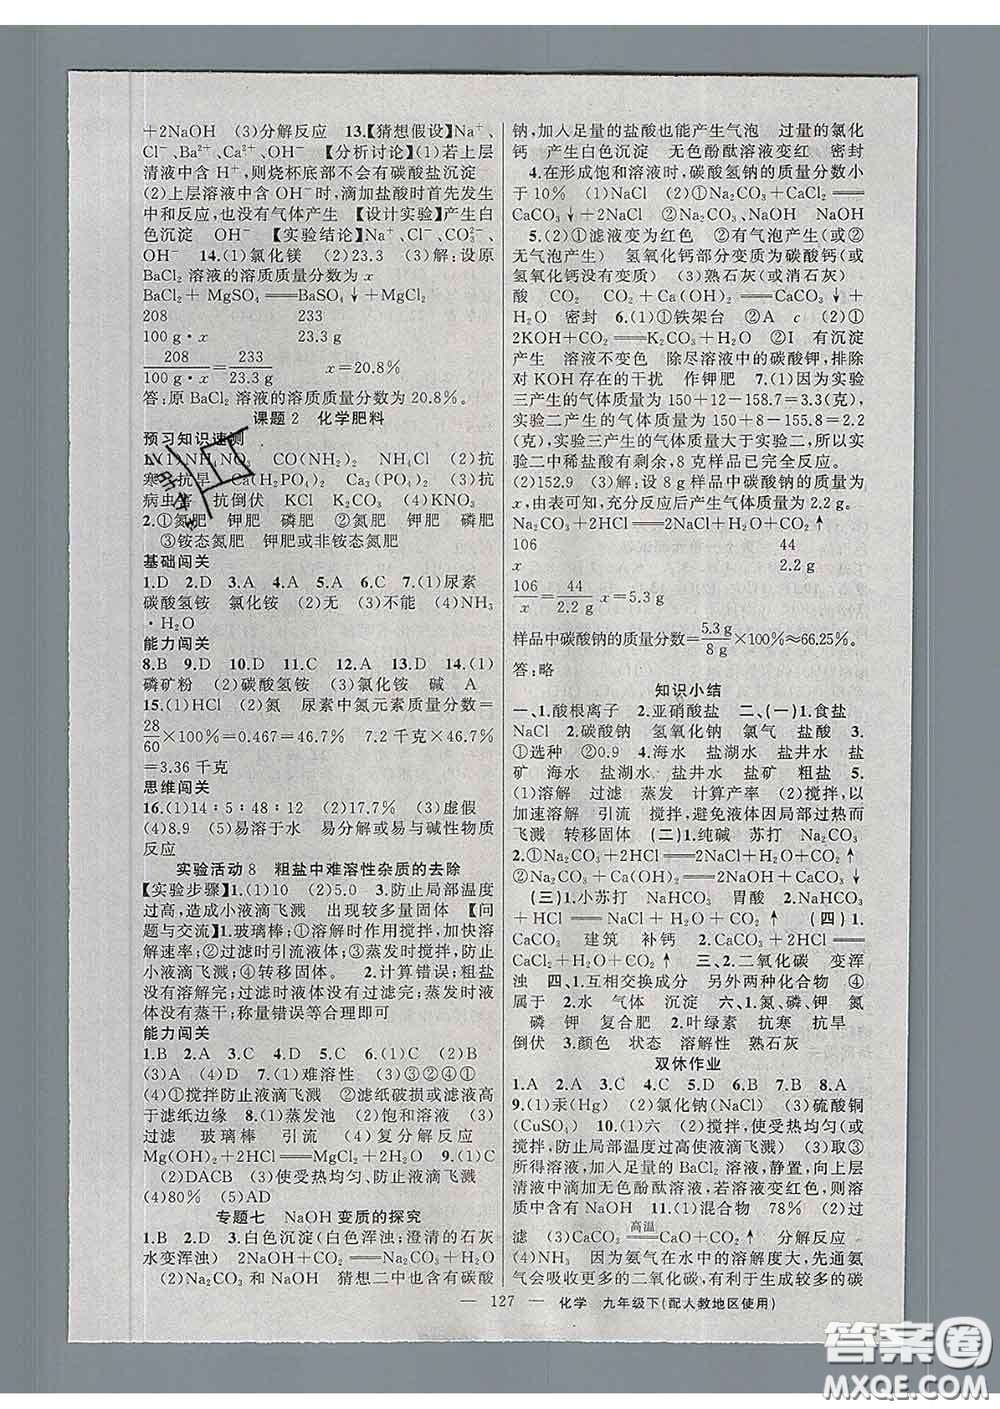 +2NaOH (3)分解反应 13.【猜想假设】Na⁺、
Cl⁻、Ba²⁺、Ca²⁺、OH⁻ 【分析讨论】(1)若上层
清液中含 H⁺,则烧杯底部不会有碳酸盐沉淀
(2)上层溶液中含 OH⁻时,滴加盐酸时首先发生
中和反应,也没有气体产生 【设计实验】产生白
色沉淀 OH⁻ 【实验结论】Na⁺、Cl⁻、CO₃²⁻、
OH⁻ 14.(1)氯化镁 (2)23.3 (3)解:设原
BaCl₂ 溶液的溶质质量分数为 x
BaCl₂ + MgSO₄ ══ BaSO₄↓ + MgCl₂
208 233
100 g · x 23.3 g
208/(100 g · x) = 233/23.3 g x=20.8%
答:原 BaCl₂ 溶液的溶质质量分数为 20.8%。
课题 2 化学肥料
预习知识速测
1.(1)NH₄NO₃ CO(NH₂)₂ NH₄Cl (2)抗
寒 抗旱 Ca(H₂PO₄)₂ Ca₃(PO₄)₂ (3)抗
病虫害 抗倒伏 KCl K₂CO₃ (4)KNO₃
2.①氮肥 钾肥 磷肥 ②氮肥 钾肥 磷肥
③铵态氮肥 钾肥或非铵态氮肥
基础闯关
1.D 2.D 3.A 4.A 5.A 6.C 7.(1)尿素
碳酸氢铵 氯化铵 (2)无 (3)不能 (4)NH₃
· H₂O
能力闯关
8.B 9.D 10.D 11.C 12.A 13.D 14.(1)
磷矿粉 (2)碳酸氢铵 (3)氯化铵 碱 A
15.(1)HCl (2)氮 尿素中氮元素质量分数=
28/60×100%=0.467=46.7% 7.2 千克×46.7%
=3.36 千克
思维闯关
16.(1)14∶5∶48∶12 (2)17.7% (3)虚假
(4)8.9 (5)易溶于水 易分解或易与碱性物质
反应
实验活动 8 粗盐中难溶性杂质的去除
【实验步骤】1.(1)10 (2)5.0 3.防止局部温度
过高,造成小液滴飞溅 出现较多量固体 【问
题与交流】1.玻璃棒;①溶解时作用搅拌,加快溶
解速率;②过滤时引流液体;③蒸发时搅拌,防止
小液滴飞溅;④转移固体。 2.计算错误;粗盐
没有溶解完;过滤时液体没有过滤完;蒸发时液
体没有蒸干;称量错误等合理即可
能力闯关
1.B 2.A 3.B 4.C 5.C 6.(1)C (2)B
(3)A (4)D 7.(1)难溶性 (3)③②④①
(4)①搅拌不充分 ②滤纸破损或液面高
于滤纸边缘 8.(1)蒸发池 (2)饱和溶液 (3)
过滤 玻璃棒 引流 (4)复分解反应
Mg(OH)₂+2HCl══MgCl₂+2H₂O 9.(1)C
(2)DACB (3)使受热均匀、防止液滴飞溅
(4)80% (5)AD
专题七 NaOH 变质的探究
1.B 2.D 3.白色沉淀(白色浑浊;澄清的石灰
水变浑浊) 2NaOH+CO₂══Na₂CO₃+H₂O
(2)Na₂CO₃ 和 NaOH 猜想二中也含有碳酸
钠,加入足量的盐酸也能产生气泡 过量的氯化
钙 产生白色沉淀 无色酚酞溶液变红 密封
4.在形成饱和溶液时,碳酸氢钠的质量分数小
于 10% (1)NaCl (2)①Na₂CO₃+CaCl₂══
CaCO₃↓+2NaCl ②Na₂CO₃、NaOH NaOH
5.(2)①滤液变为红色 ②有气泡产生(或②
无气泡产生) 氢氧化钙部分变质为碳酸钙(或
氢氧化钙没有变质) (3)熟石灰(或消石灰)
酸 CO₂ CO₂+Ca(OH)₂══CaCO₃↓+
H₂O 密封 6.(1)①铁架台 ②A c (2)①
2KOH+CO₂══K₂CO₃+H₂O ②I 有沉淀
产生 溶液不变色 除尽溶液中的碳酸钾,排除
对 KOH 存在的干扰 作钾肥 7.(1)因为实验
三产生的气体质量为 150+12-158.7=3.3(克),
实验二产生的气体质量为 150+8-155.8=2.2
(克),实验三产生的气体质量大于实验二,所以实
验二中稀盐酸有剩余,8 克样品已完全反应。
(2)152.9 (3)解:设 8 g样品中碳酸钠的质量为
x,由表可知,充分反应后产生气体质量为 2.2 g。
Na₂CO₃+2HCl══2NaCl+H₂O+CO₂↑
106 44
x 2.2 g
106/x=44/2.2 g x=5.3 g
样品中碳酸钠的质量分数=5.3 g/8 g×100%≈66.25%。
答:略
知识小结
一、1.酸根离子 2.亚硝酸盐 二、(一)1.食盐
NaCl 2.碳酸钠 氢氧化钠 氯气 盐酸 3.
①选种 ②0.9 4.海水 盐湖水 盐井水 盐
矿 海水 盐湖水 盐井水 盐矿 粗盐 5.
(1)溶解 过滤 蒸发 计算产率 (2)搅拌,以
加速溶解 引流 搅拌,避免液体因局部过热而
飞溅 转移固体 (二)1.纯碱 苏打 Na₂CO₃
2.①Na₂CO₃+2HCl══2NaCl+H₂O+CO₂↑
(三)1.小苏打 NaHCO₃ 胃酸 2.NaHCO₃
+HCl══NaCl+H₂O+CO₂↑ (四)1.
CaCO₃ 建筑 补钙 2.CaCO₃+2HCl══
CaCl₂+H₂O+CO₂↑ 三、2.二氧化碳 变浑
浊 四、1.互相交换成分 另外两种化合物 ④
属于 2.水 气体 沉淀 六、1.氮、磷、钾 氮
磷 钾 复合肥 2.叶绿素 抗寒 抗旱
倒伏 3.颜色 状态 溶解性 熟石灰
双休作业
1.A 2.C 3.D 4.C 5.D 6.D 7.B 8.A
9.(1)汞(Hg) (2)氯化钠(NaCl) (3)硫酸铜
(CuSO₄) 10.(1)六 (2)搅拌,使受热均匀(或
搅拌,防止局部温度过高使液滴飞溅) (3)取③
所得溶液,加入足量的 BaCl₂ 溶液,静置,向上层
清液中滴加无色酚酞溶液,若溶液变红色,则原
溶质中含有 NaOH 11.(1)混合物 78% (2)过
滤 (3)CaCO₃ 高温══ CaO+CO₂↑ 分解反应
(4)NH₃ 因为氨气在水中的溶解度大,先通氨
气会吸收更多的二氧化碳,有利于生成较多的碳
— 127 — 化学 九年级下(配人教地区使用)
答案圈
MXQE.COM